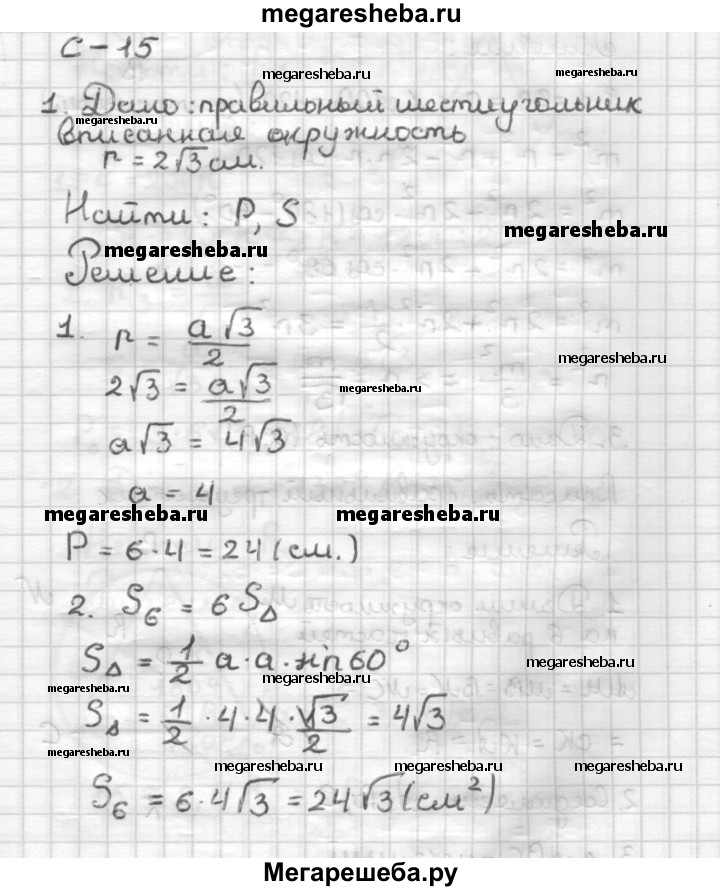 megaresheba.ru
С-15
megaresheba.ru
megaresheba.ru
1. Дано: правильный шестиугольник
megaresheba.ru
вписанная окружность
r = 2√3 см.
Найти: P, S
megaresheba.ru
megaresheba.ru
Решение:
1. r = a√3/2
megaresheba.ru
2√3 = a√3/2
megaresheba.ru
a√3 = 4√3
a = 4
megaresheba.ru
megaresheba.ru
P = 6·4 = 24 (см.)
2. S₆ = 6 S△
S△ = 1/2 a·a·sin 60°
megaresheba.ru
megaresheba.ru
megaresheba.ru
S△ = 1/2 · 4·4 · √3/2 = 4√3
megaresheba.ru
megaresheba.ru
megaresheba.ru
megaresheba.ru
S₆ = 6·4√3 = 24√3 (см²)
Мегарешеба.ру